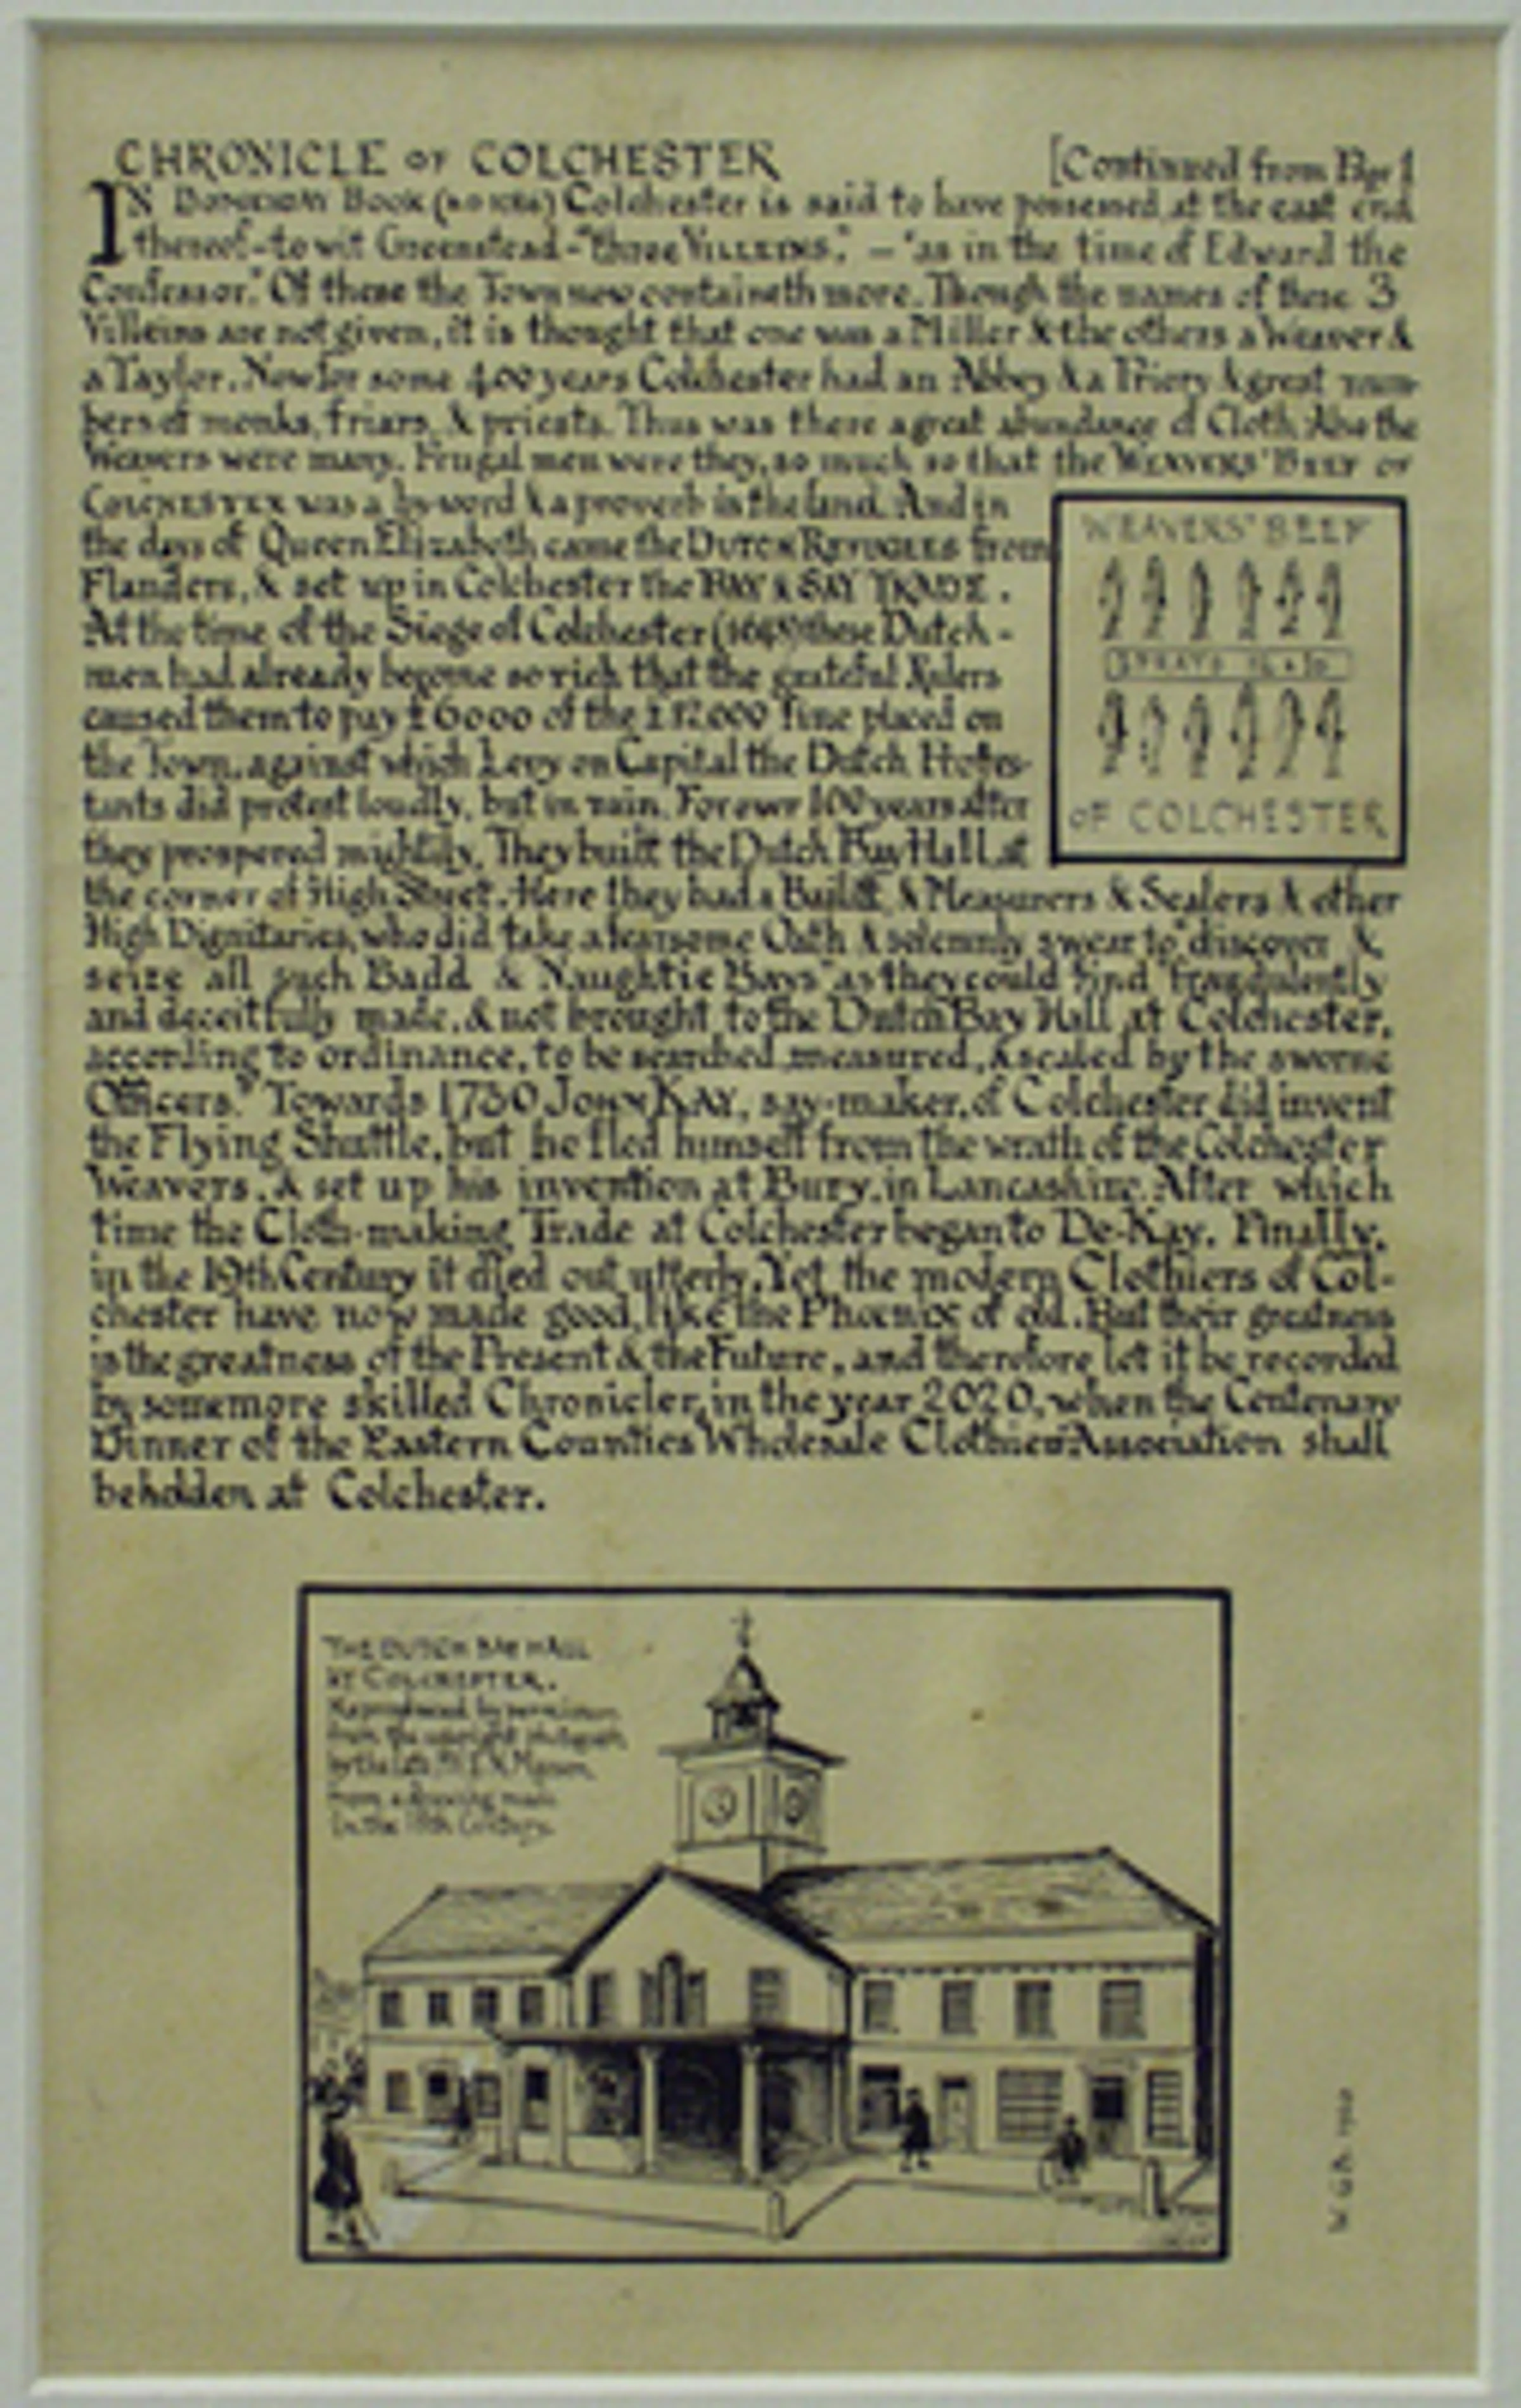 CHRONICLE OF COLCHESTER [Continued from Page 1
IN DOMESDAY BOOK (AD 1086) Colchester is said to have possessed, at the east end
thereof-to wit Greenstead-"three VILLEINS." - "as in the time of Edward the
Confessor." Of these the Town now containeth more. Though the names of these 3
Villeins are not given, it is thought that one was a Miller & the others a Weaver &
a Taylor. Now for some 400 years Colchester had an Abbey & a Priory & great num-
bers of monks, friars, & priests. Thus was there a great abundance of Cloth. Also the
Weavers were many. Frugal men were they, so much so that the WEAVERS' BEEF OF
COLCHESTER was a by-word & a proverb in the land. And in
the days of Queen Elizabeth came the DUTCH REFUGEES from
Flanders, & set up in Colchester the BAY & SAY TRADE.
At the time of the Siege of Colchester (1648) these Dutch-
men had already become so rich that the grateful Rulers
caused them to pay £6000 of the £12,000 fine placed on
the Town, against which Levy on Capital the Dutch Protes-
tants did protest loudly, but in vain. For over 100 years after
they prospered mightily. They built the Dutch Bay Hall, at
the corner of High Street. Here they had a Bailiff, & Measurers & Sealers & other
High Dignitaries, who did take a fearsome Oath & solemnly swear to "discover &
seize all such Badd & Naughtie Bays" as they could find "fraudulently
and deceitfully made, & not brought to the Dutch Bay Hall at Colchester,
according to ordinance, to be searched, measured, & sealed by the sworne
Officers." Towards 1730 JOHN KAY, say-maker, of Colchester did invent
the Flying Shuttle, but he fled himself from the wrath of the Colchester
Weavers, & set up his invention at Bury, in Lancashire. After which
time the Cloth-making Trade at Colchester began to De-Kay. Finally,
in the 19th Century it died out utterly. Yet the modern Clothiers of Col-
chester have now made good, like the Phoenix of old. But their greatness
is the greatness of the Present & the Future, and therefore let it be recorded
by some more skilled Chronicler, in the year 2020, when the Centenary
Dinner of the Eastern Counties Wholesale Clothiers Association shall
be holden at Colchester.
WEAVERS' BEEF
SPRATS
OF COLCHESTER
THE DUTCH BAY HALL
AT COLCHESTER.
Reproduced by permission
from the copyright photograph
by the late Mr
from a drawing made
in the Century.